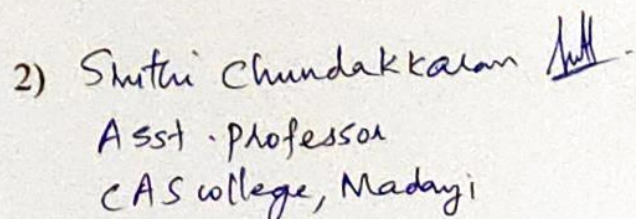 2) Shuthi Chundakkaran
Asst. Professor
CAS college, Madayi